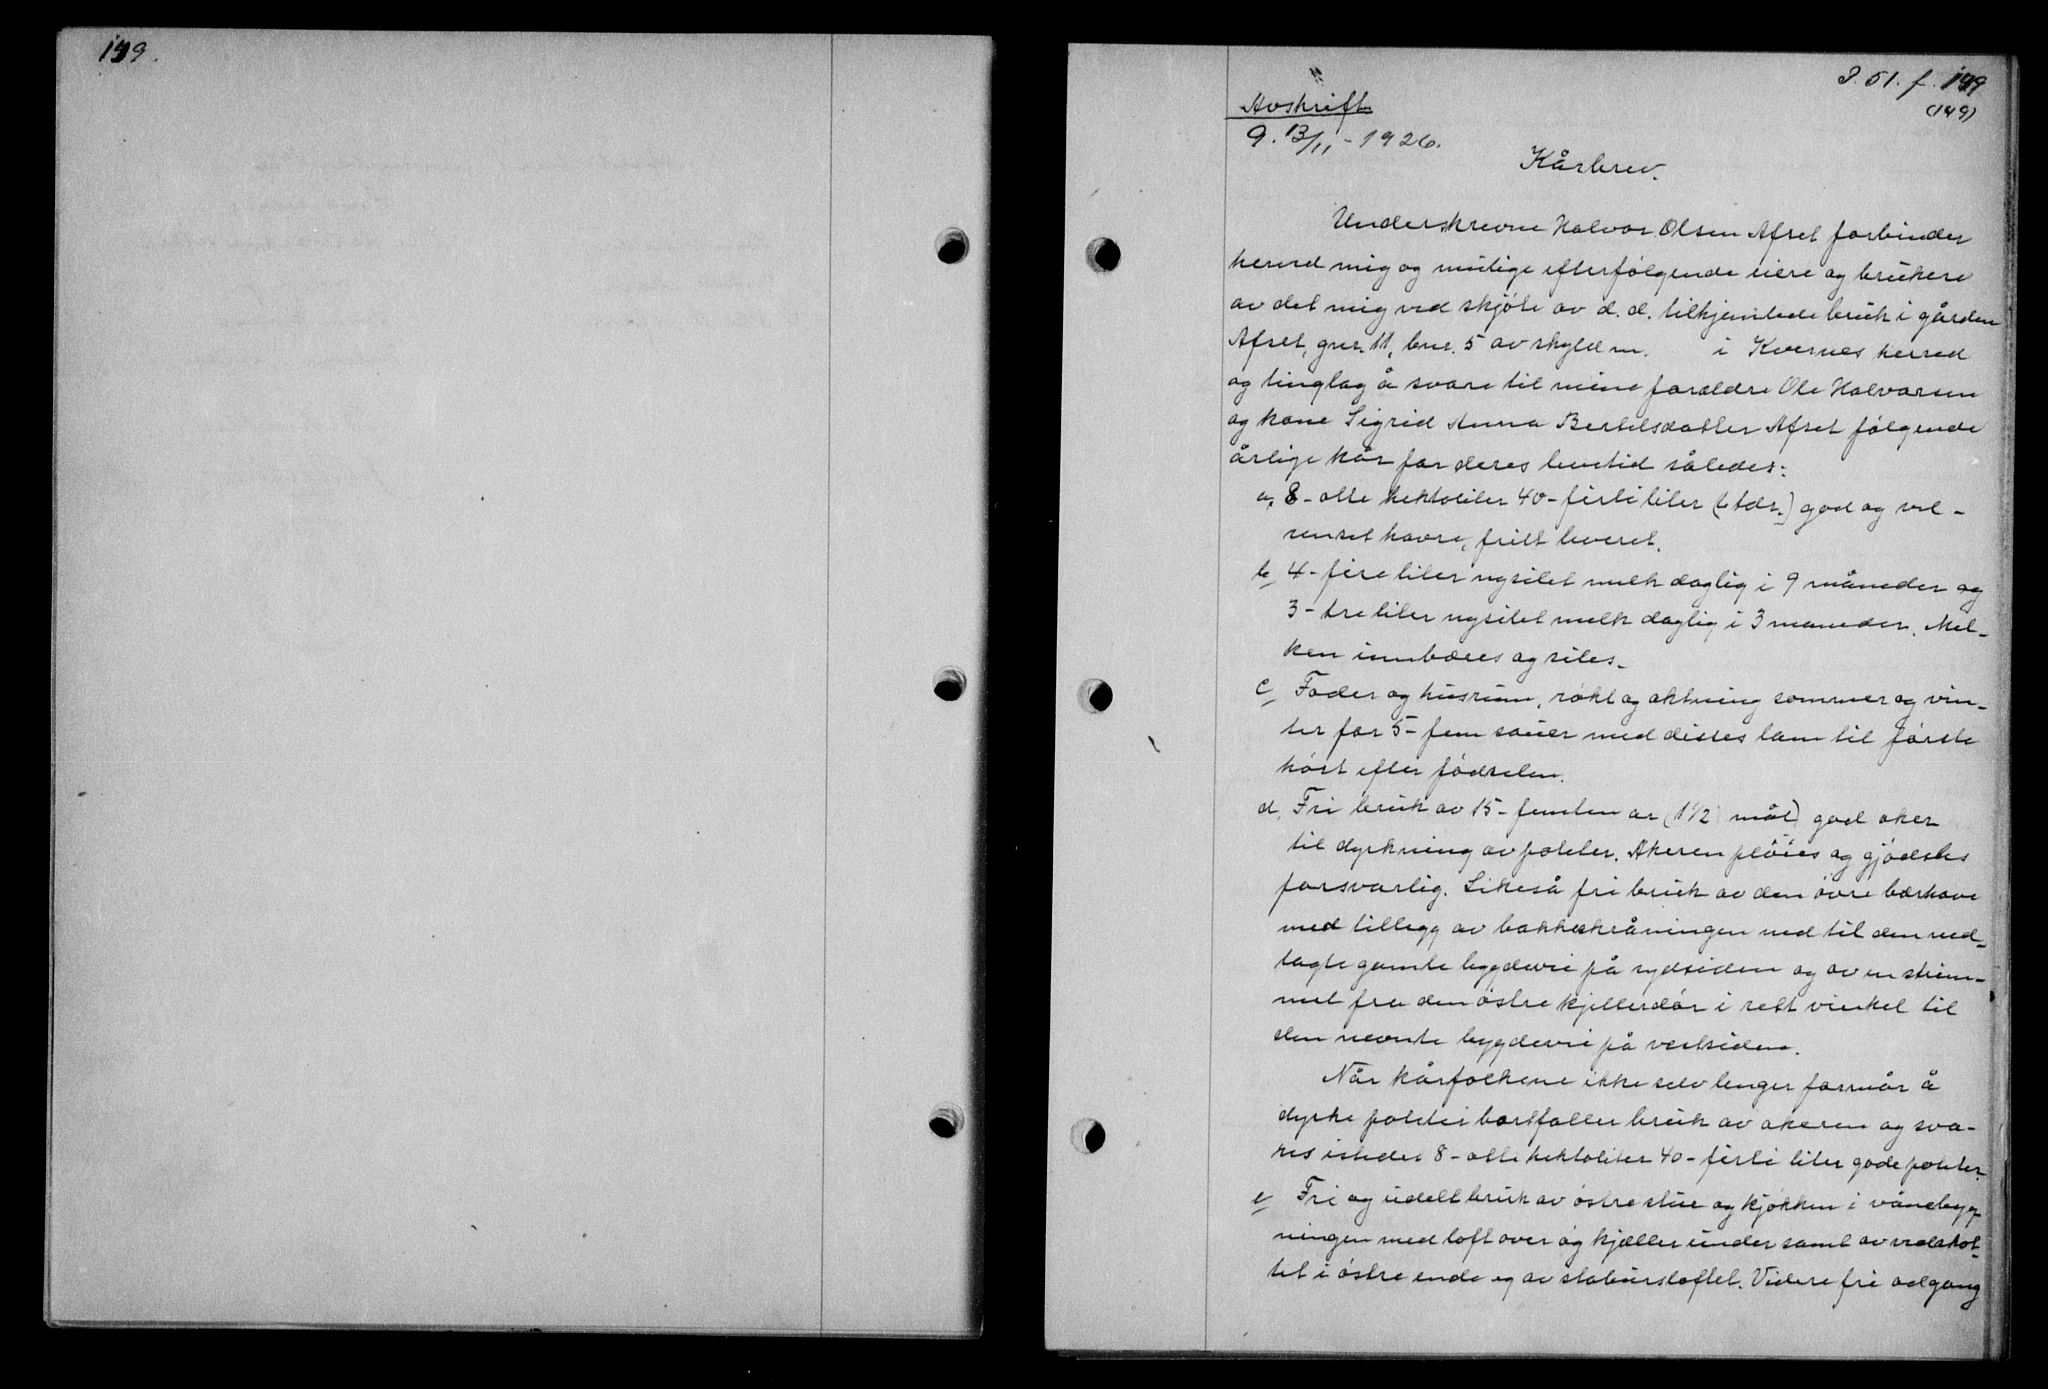 149.
P. 51. f. 149
(149)
Avskrift
9. 13/11 - 1926.
Kårbrev.
Underskrevne Halvor Olsen Afset forbinder
herved mig og mulige efterfølgende eiere og brukere
av det mig ved skjöte av d. d. tilhjemlede bruk i gården
Afset, gnr. 11, bnr. 5 av skyld m. i Kvernes herred
og tinglag å svare til mine forældre Ole Halvorsen
og kone Sigrid Anna Bertelsdatter Afset følgende
årlige kår for deres levetid således:
a, 8 - otte hektoliter 40 - firti liter (6 tdr.) god og vel-
renset havre, fritt leveret.
b, 4 - fire liter nysilet melk daglig i 9 måneder og
3 - tre liter nysilet melk daglig i 3 maneder. Mel-
ken innbæres og siles.
c, Foder og husrum, røkt og aktning sommer og vin-
ter for 5 - fem sauer med disses lam til første
höst efter födselen.
d, Fri bruk av 15 - femten ar (1 1/2 mål) god aker
til dyrkning av poteter. Akeren plöies og gjödsles
forsvarlig. Likeså fri bruk av den övre bærhave
med tillegg av bakkeskråningen ned til den ned-
lagte gamle bygdevei på sydsiden og av en strim-
mel fra den östre kjellerdör i rett vinkel til
den nevnte bygdevei på vestsiden.
Når kårfolkene ikke selv lenger formår å
dyrke poteter bortfaller bruk av akeren og sva-
res istedet 8 - otte hektoliter 40 - firti liter gode poteter.
e, Fri og udelt bruk av östre stue og kjökken i vånebyg-
ningen med loft over og kjæller under samt av vedskot-
tet i östre ende og av stabursloftet. Videre fri adgang